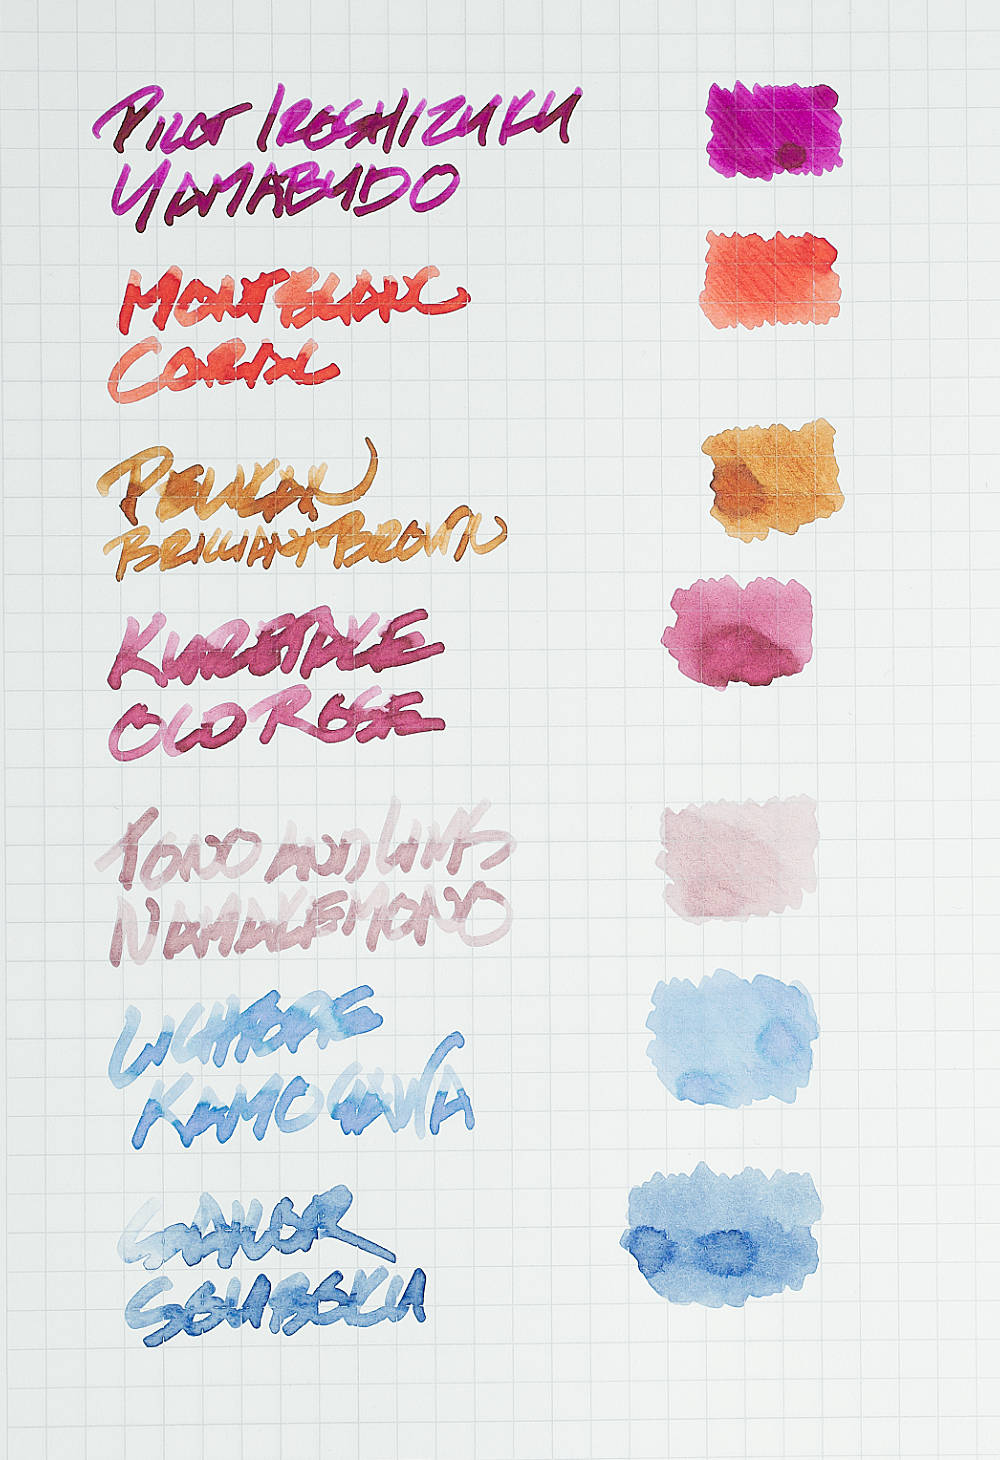 PILOT IROSHIZUKU
YAMABUDO
MONTBLANC
CORAL
PELIKAN
BRILLIANT BROWN
KURETAKE
OLD ROSE
TONO AND LIMS
NAMAKEMONO
LICHTOPE
KAMOGAWA
SAILOR
SOUBOKU